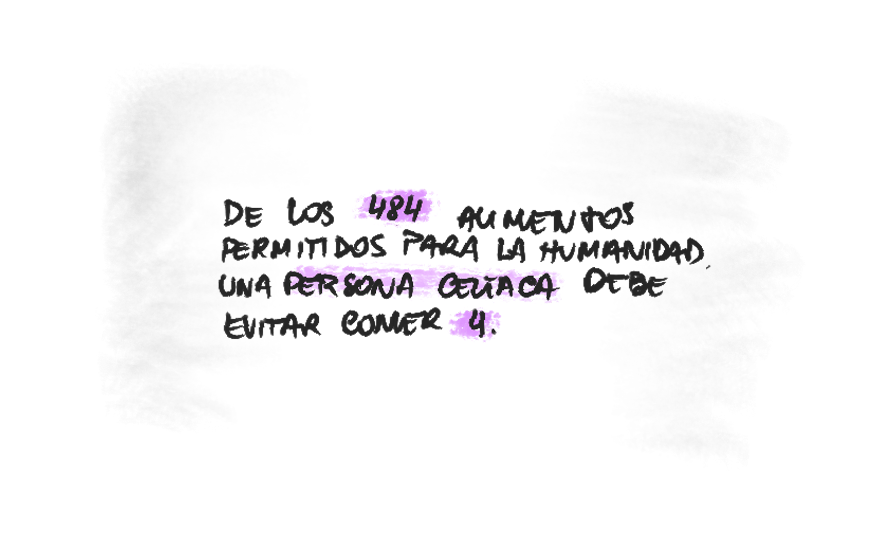 DE LOS 484 ALIMENTOS
PERMITIDOS PARA LA HUMANIDAD,
UNA PERSONA CELÍACA DEBE
EVITAR COMER 4.